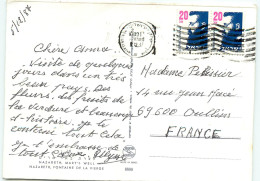 5/12/84
20
20
Chère Amie
Visite de quelques
jours dans un très
beau pays. Des
fleurs, des fruits de
la verdure et beaucoup
d'histoire. Le tout
contient tout cela
Je t'embrasse de
tout cœur
Madame Pelissier
14 rue Jean Macé
69600 Oullins
FRANCE
NAZARETH, MARY'S WELL
NAZARETH, FONTAINE DE LA VIERGE